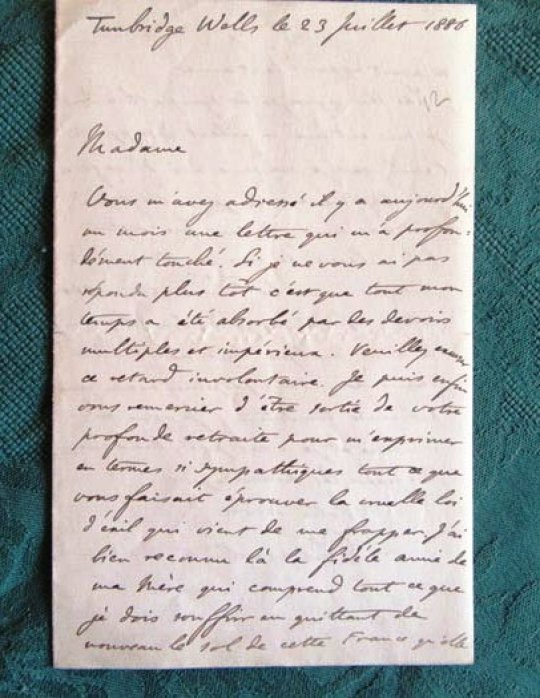 Tunbridge Wells le 23 Juillet 1886
12
Madame
Vous m'avez adressé il y a aujourd'hui
un mois une lettre qui m'a profon-
dément touché. Si je ne vous ai pas
répondu plus tôt c'est que tout mon
temps a été absorbé par des devoirs
multiples et impérieux. Veuillez excuser
ce retard involontaire. Je puis enfin
vous remercier d'être sortie de votre
profonde retraite pour m'exprimer
en termes si sympathiques tout ce que
vous faisait éprouver la cruelle loi
d'exil qui vient de me frapper. J'ai
bien reconnu là la fidèle amie de
ma Mère qui comprend tout ce que
je dois souffrir en quittant de
nouveau le sol de cette France qu'elle